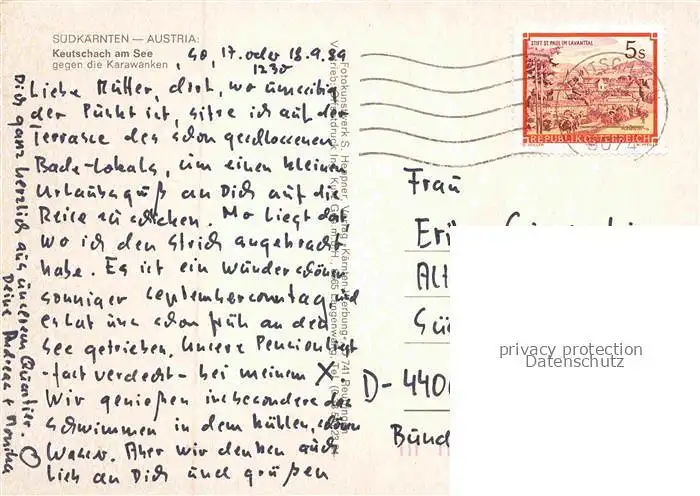 SÜDKÄRNTEN — AUSTRIA:
Keutschach am See
gegen die Karawanken
So, 17. oder 18.9.89
1230
Liebe Mutter, dort, wo
der Punkt ist, sitze ich auf der
Terrasse des schon geschlossenen
Bade-Lokals, um einen kleinen
Urlaubsgruß an Dich auf die
Reise zu schicken. Mo liegt dort
wo ich den Strich angebracht
habe. Es ist ein wunderschön
sonniger Septembersonntag und
es hat uns schon früh an den
See getrieben. Unsere Pension liegt
- fast verdeckt - bei meinem X.
Wir genießen insbesondere das
Schwimmen in dem kühlen,
Wasser. Aber wir denken auch
lieb an Dich und grüßen
Dich ganz herzlich aus unserem Quartier.
Deine Andreas + Monika
STIFT ST. PAUL IM LAVANTTAL
5s
REPUBLIK ÖSTERREICH
9074
Frau
D-440
privacy protection
Datenschutz